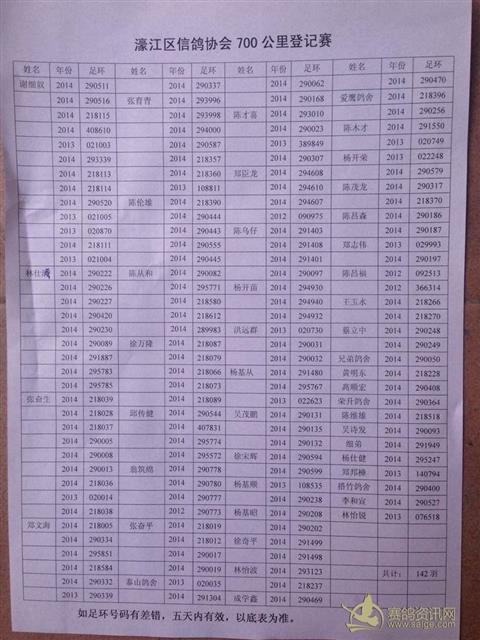 濠江区信鸽协会 700 公里登记赛
姓名 年份 足环 姓名 年份 足环 姓名 年份 足环 姓名 年份 足环
谢细奴 2014 290511 2014 290337 2014 290062 2014 290470
2014 290516 张育青 2014 293996 2014 290168 爱鹰鸽舍 2014 218396
2014 218115 2014 293998 陈才喜 2014 293010 2014 290256
2014 408610 2014 294000 2014 290023 陈木才 2014 291550
2013 021003 2014 290587 2013 389849 2013 020749
2014 293339 2014 218357 2014 290307 杨开荣 2013 022248
2014 218113 2014 218360 郑臣龙 2014 294608 2014 290579
2014 218114 2013 108811 2014 294610 陈茂龙 2014 290317
2014 290520 陈伦雄 2014 218390 2014 294607 2014 218370
2013 021005 2014 290444 2012 090975 陈昌森 2014 290186
2013 020870 2014 290443 陈乌仔 2014 291403 2014 290187
2014 218111 2014 290555 2014 291408 郑志伟 2013 029993
2013 021004 2014 290445 2014 291401 2013 020171
林仕 2014 290222 陈从和 2014 290082 2014 290097 陈昌福 2012 092513
2014 290226 2014 295771 杨开苗 2014 294930 2012 366314
2014 290227 2014 218580 2014 294940 王玉水 2014 218266
2014 290420 2014 218612 2014 294932 2014 218270
2014 290230 2014 289983 洪远群 2013 020730 蔡立中 2014 290248
2014 290089 徐万隆 2014 218087 2014 290031 2014 290249
2014 291887 2014 218079 2014 290032 兄弟鸽舍 2014 290050
2014 295783 2014 218066 杨基从 2014 291480 黄明东 2014 218228
2014 295785 2014 218073 2014 295767 高顺宏 2014 290408
张奋生 2014 218039 2014 218089 2013 022623 荣升鸽舍 2014 290364
2014 218028 邱传健 2014 290544 吴茂鹏 2014 290131 陈雄雄 2014 218518
2014 218037 2014 407831 2014 290135 吴诗发 2014 290093
2014 290005 2014 295774 2014 290132 细弟 2014 291949
2014 290008 2014 295572 徐宋辉 2014 290594 杨仕健 2014 295247
2014 290013 翁筑绵 2014 290778 2014 290599 郑邦 2013 140794
2014 218036 2014 290780 杨基顺 2013 108535 搭竹鸽舍 2014 290400
2013 020014 2014 290777 2014 290238 李和宣 2014 290527
2014 218038 2012 290773 杨基昭 2014 290208 林怡锐 2013 076518
郑文海 2014 218005 张奋平 2014 218019 2014 290202
2014 290344 2014 218012 徐奇平 2014 291499
2014 295851 2014 290019 2014 291498
2014 218584 2014 290017 林怡波 2014 293123 共计： 142 羽
2014 290332 泰山鸽舍 2013 020035 2014 218237
2013 290339 2014 291304 成学鑫 2014 290469
如足环号码有差错，五天内有效，以底表为准。
赛鸽资讯网
www.saige.com